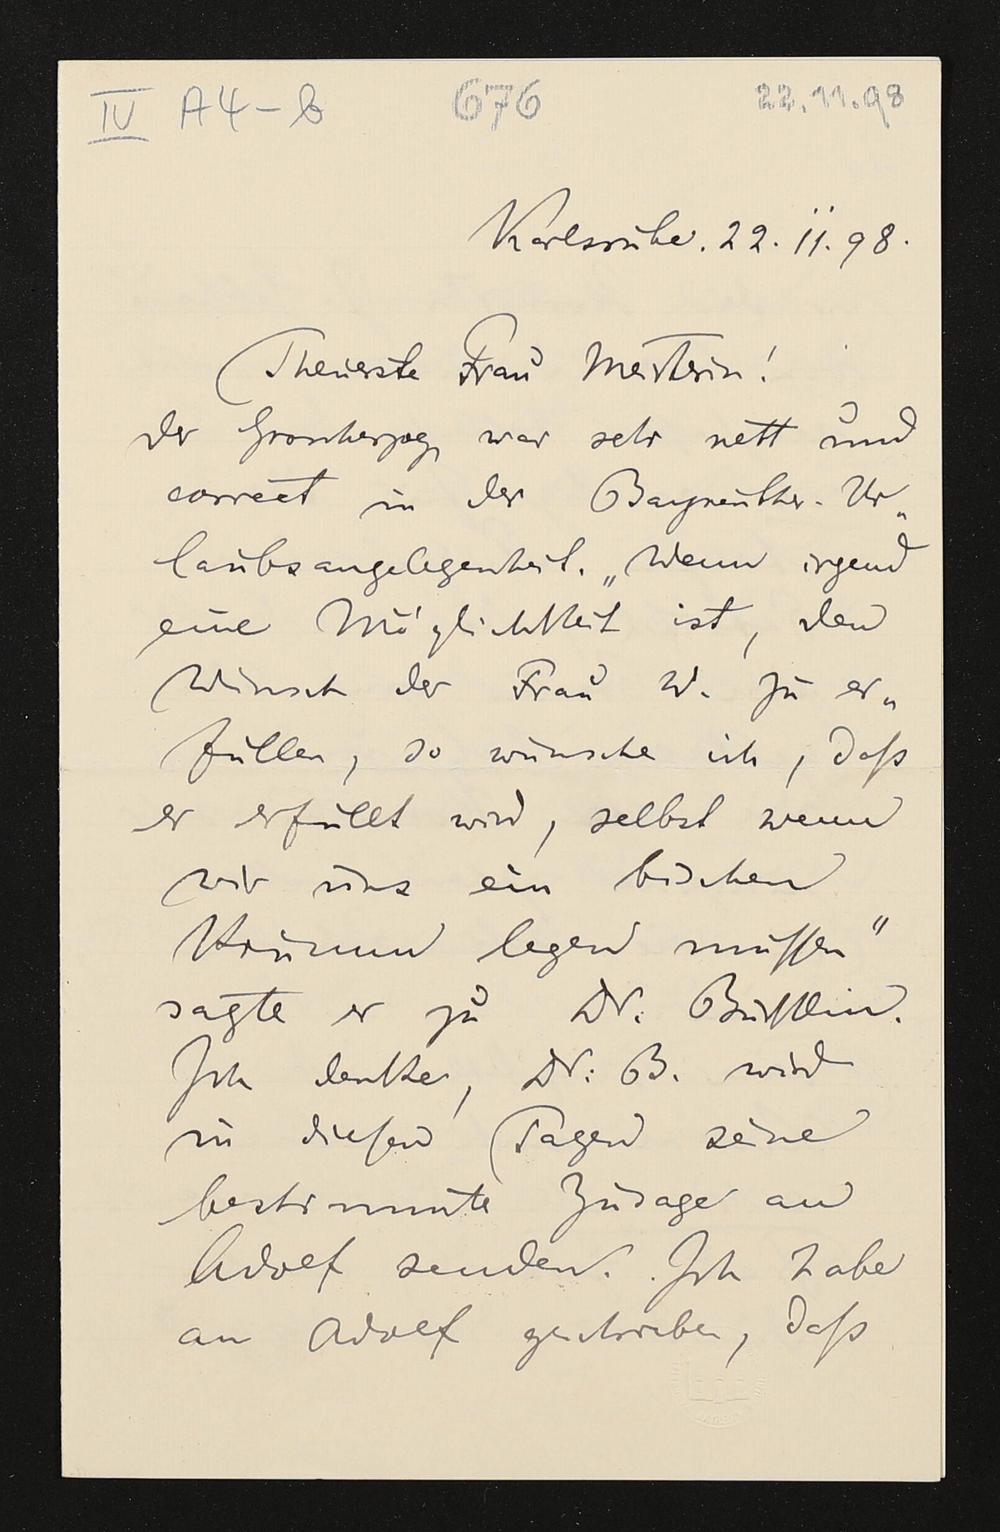 IV A4-6 676 22.11.98
Karlsruhe. 22. 11. 98.
Theuerste Frau Meisterin!
der Grossherzog war sehr nett und
correct in der Bayreuther-Ur„
laubsangelegenheit. „Wenn irgend
eine Möglichkeit ist, den
Wunsch der Frau W. zu er„
füllen, so wünsche ich, daß
er erfüllt wird, selbst wenn
wir uns ein bischen
Krumm legen müssen"
sagte er zu Dr. Bürklin.
Ich denke, Dr: B. wird
in diesen Tagen seine
bestimmte Zusage an
Adolf senden. Ich habe
an Adolf geschrieben, daß